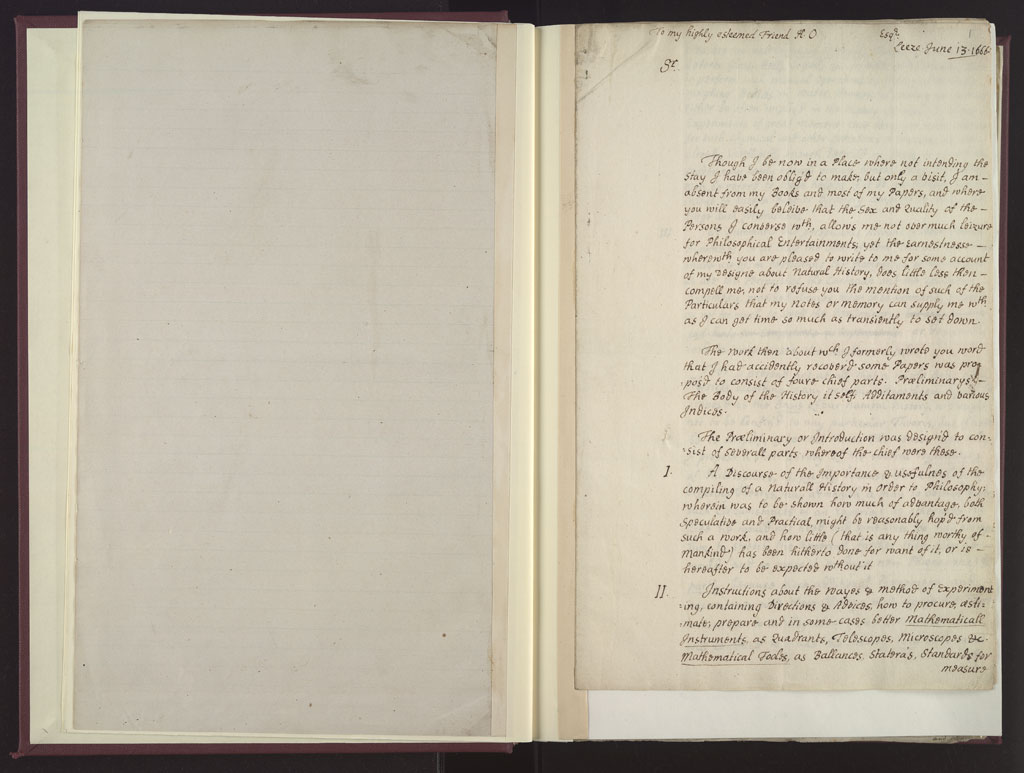 To my highly esteemed Friend H O Esqr. 1
Leeze June 13. 1666
Sr.
Though I be now in a Place where not intending the
stay I have been oblig'd to make, but only a visit, I am –
absent from my Books and most of my Papers, and where
you will easily beleive that the Sex and Quality of the –
Persons I converse wth, allows me not over much leizure
for Philosophical Entertainments, yet the Earnestnesse –
wherewth you are pleased to write to me for some account
of my Designe about Natural History, does little less then –
compell me, not to refuse you the mention of such of the
Particulars that my Notes or memory can supply me wth
as I can get time so much as transiently to set down.
The Work then about wch I formerly wrote you word
that I had accidently recover'd some Papers was pro=
pos'd to consist of foure chief parts. Præliminarys –
The Body of the History it self, Additaments and various
Indices.
The Præliminary or Introduction was design'd to con=
sist of severall parts whereof the chief were these.
I. A Discourse of the Importance & usefulnes of the
compiling of a Naturall History in order to Philosophy;
wherein was to be shown how much of advantage, both
Speculative and Practical, might be reasonably hop'd from
such a work, and how little (that is any thing worthy of –
Mankind) has been hitherto done for want of it, or is –
hereafter to be expected wthout it
II. Instructions about the wayes & method of Experiment
=ing, containing Directions & Advices, how to procure, æsti=
mate, prepare and in some cases better Mathematicall
Instruments, as Quadrants, Telescopes, Microscopes &c
Mathematical Tooles, as Ballances, Statera's, Standards for
measure